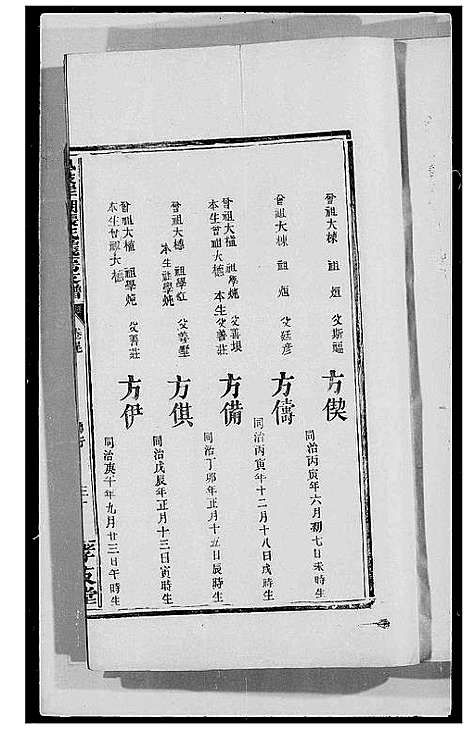 曾祖大棟 祖烜 父斯謳
方偰
同治丙寅年六月初七日未時生
曾祖大棟 祖烜 父廷彥
方儔
同治丙寅年十二月十八日戌時生
曾祖大楹 祖學㷍 父善垠
本生曾祖大櫄 本生父善莊
方備
同治丁卯年正月十五日辰時生
曾祖大櫄 祖學 父善墅
本生祖學㷍
方倛
同治戊辰年正月十三日寅時生
曾祖大楹 祖學㷍 父善莊
本生曾祖大櫄
方伊
同治庚午年九月廿三日午時生
孝友堂